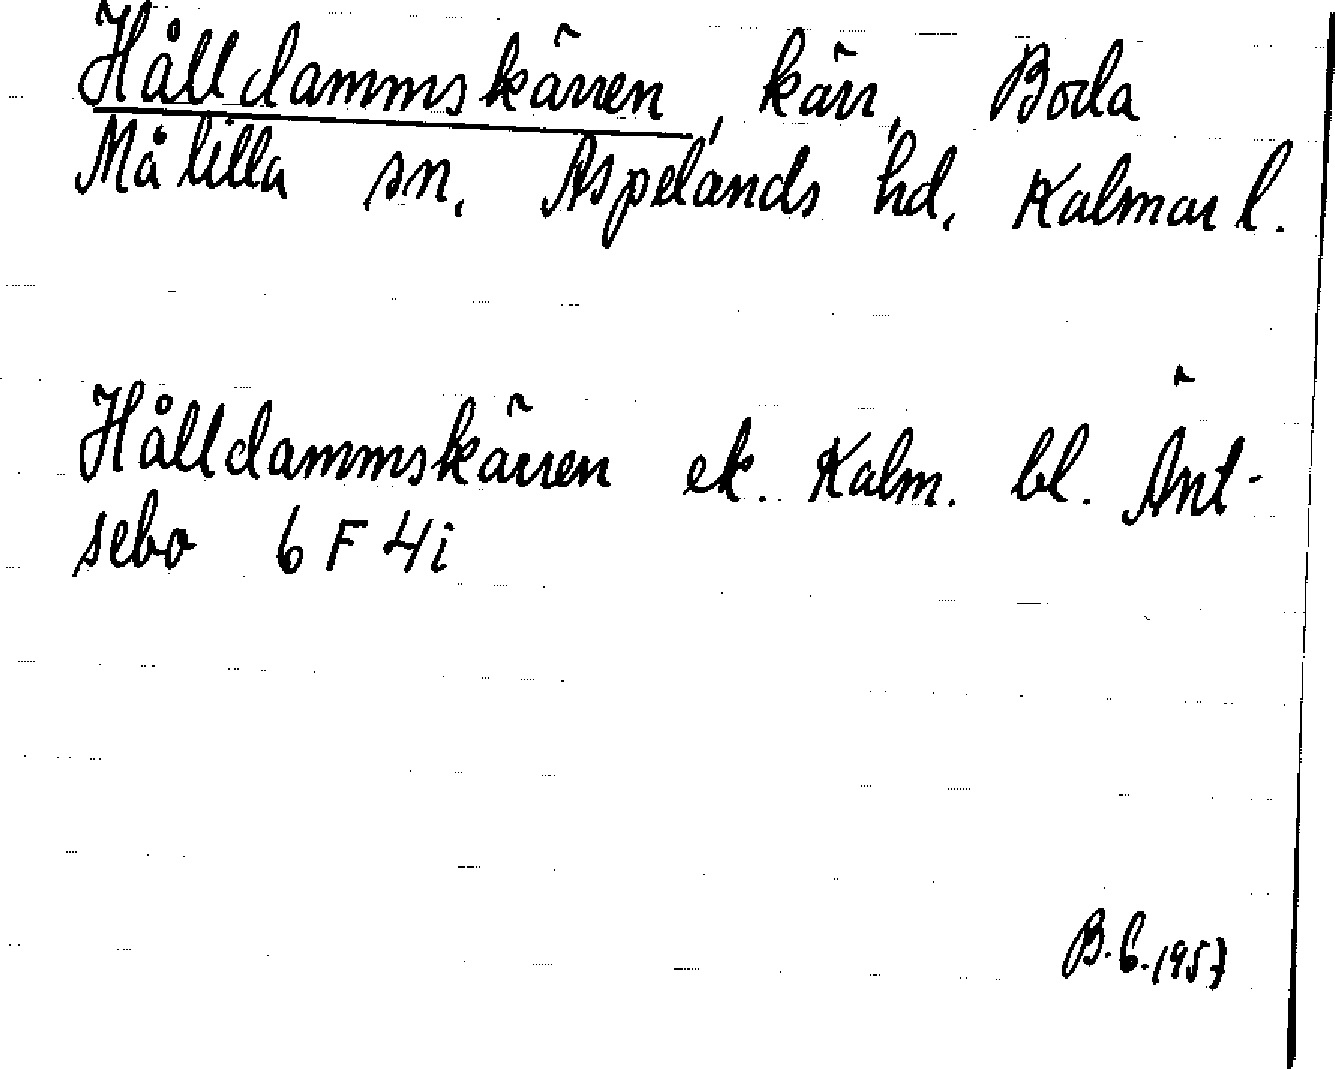 Hålldammskärren, kärr, Boda
Målilla sn, Aspelands hd, Kalmar l.
Hålldammskärren ek. Kalm. bl. Änt-
sebo 6 F 4i
B.G.1957